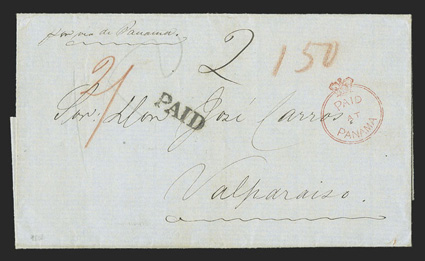 por via de Panama.
2 150
2/
PAID
PAID
AT
PANAMA
Señor Don José Carros
Valparaiso.